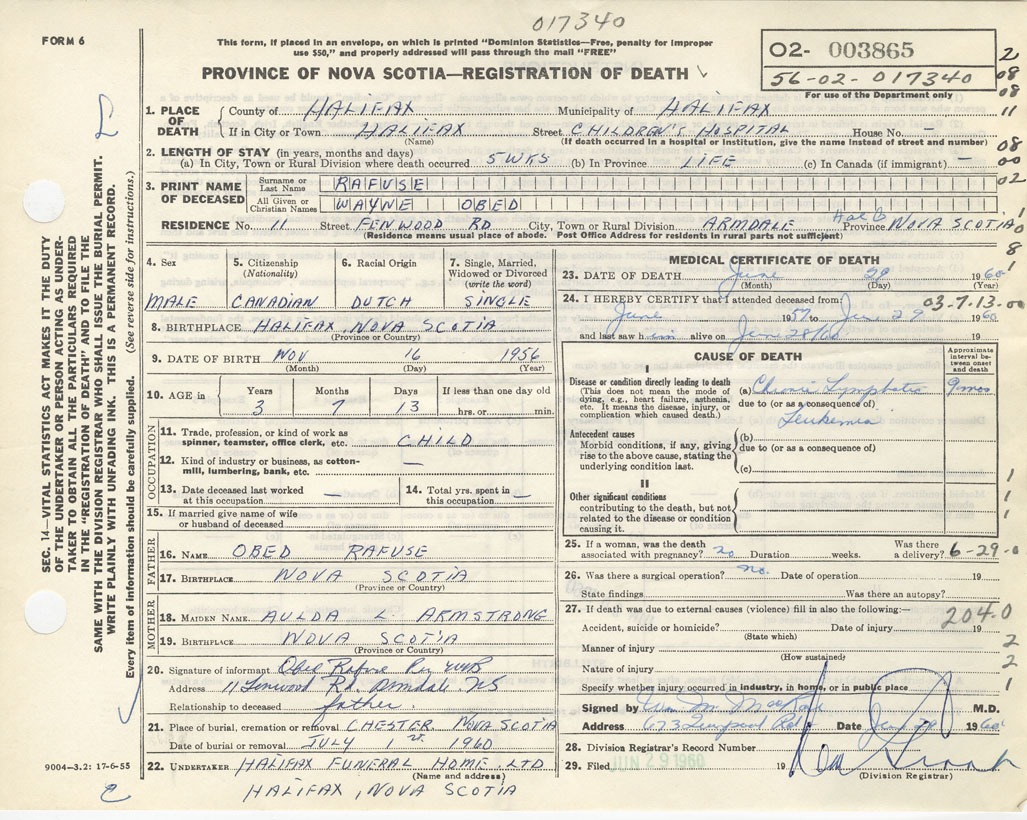 017340
FORM 6
This form, if placed in an envelope, on which is printed "Dominion Statistics—Free, penalty for improper
use $50," and properly addressed will pass through the mail "FREE"
02- 003865
56-02-017340
For use of the Department only
PROVINCE OF NOVA SCOTIA—REGISTRATION OF DEATH
2
08
08
11
08
00
02
1
0
8
SEC. 14—VITAL STATISTICS ACT MAKES IT THE DUTY
OF THE UNDERTAKER OR PERSON ACTING AS UNDER-
TAKER TO OBTAIN ALL THE PARTICULARS REQUIRED
IN THE "REGISTRATION OF DEATH" AND TO FILE THE
SAME WITH THE DIVISION REGISTRAR WHO SHALL ISSUE THE BURIAL PERMIT.
WRITE PLAINLY WITH UNFADING INK. THIS IS A PERMANENT RECORD.
Every item of information should be carefully supplied. (See reverse side for instructions.)
1. PLACE OF DEATH
County of HALIFAX Municipality of HALIFAX
If in City or Town HALIFAX Street CHILDREN'S HOSPITAL House No. —
(Name) (If death occurred in a hospital or institution, give the name instead of street and number)
2. LENGTH OF STAY (in years, months and days)
(a) In City, Town or Rural Division where death occurred 5 WKS (b) In Province LIFE (c) In Canada (if immigrant) —
3. PRINT NAME OF DECEASED
Surname or Last Name RAFUSE
All Given or Christian Names WAYNE OBED
RESIDENCE No. 11 Street FENWOOD RD City, Town or Rural Division ARMDALE Province NOVA SCOTIA
(Residence means usual place of abode. Post Office Address for residents in rural parts not sufficient)
4. Sex 5. Citizenship (Nationality) 6. Racial Origin 7. Single, Married, Widowed or Divorced (write the word)
MALE CANADIAN DUTCH SINGLE
8. BIRTHPLACE HALIFAX, NOVA SCOTIA
(Province or Country)
9. DATE OF BIRTH NOV 16 1956
(Month) (Day) (Year)
10. AGE in Years Months Days If less than one day old
3 7 13 hrs. or min.
OCCUPATION
11. Trade, profession, or kind of work as
spinner, teamster, office clerk, etc. CHILD
12. Kind of industry or business, as cotton-
mill, lumbering, bank, etc. —
13. Date deceased last worked at this occupation —
14. Total yrs. spent in this occupation —
15. If married give name of wife
or husband of deceased
FATHER
16. NAME OBED RAFUSE
17. BIRTHPLACE NOVA SCOTIA
(Province or Country)
MOTHER
18. MAIDEN NAME AULDA L. ARMSTRONG
19. BIRTHPLACE NOVA SCOTIA
(Province or Country)
20. Signature of informant Obed Rafuse Per
Address 11 Fenwood Rd. Armdale NS
Relationship to deceased father.
21. Place of burial, cremation or removal CHESTER NOVA SCOTIA
Date of burial or removal JULY 1st 1960
22. UNDERTAKER HALIFAX FUNERAL HOME LTD
(Name and address)
HALIFAX, NOVA SCOTIA
9004-3.2: 17-6-55
MEDICAL CERTIFICATE OF DEATH
23. DATE OF DEATH June 29 1960
(Month) (Day) (Year)
24. I HEREBY CERTIFY that I attended deceased from 03-7.13-00
June 1957 to June 29 1960
and last saw him alive on June 28/60 19
CAUSE OF DEATH
Approximate interval between onset and death
I
Disease or condition directly leading to death
(This does not mean the mode of
dying, e.g., heart failure, asthenia,
etc. It means the disease, injury, or
complication which caused death.)
(a) Chronic Lymphatic 9 mos
due to (or as a consequence of)
Leukemia
Antecedent causes
Morbid conditions, if any, giving
rise to the above cause, stating the
underlying condition last.
(b)
due to (or as a consequence of)
(c)
II
Other significant conditions
contributing to the death, but not
related to the disease or condition
causing it.
1
1
1
25. If a woman, was the death
associated with pregnancy? no Duration weeks. Was there a delivery? 6-29-0
26. Was there a surgical operation? no. Date of operation 19
State findings Was there an autopsy?
27. If death was due to external causes (violence) fill in also the following:—
204.0
Accident, suicide or homicide? Date of injury 19
(State which)
Manner of injury 2
(How sustained)
Nature of injury 2
Specify whether injury occurred in industry, in home, or in public place 1
Signed by M.D.
Address 673 Date June 29 1960
28. Division Registrar's Record Number
29. Filed JUN 29 1960 19
(Division Registrar)